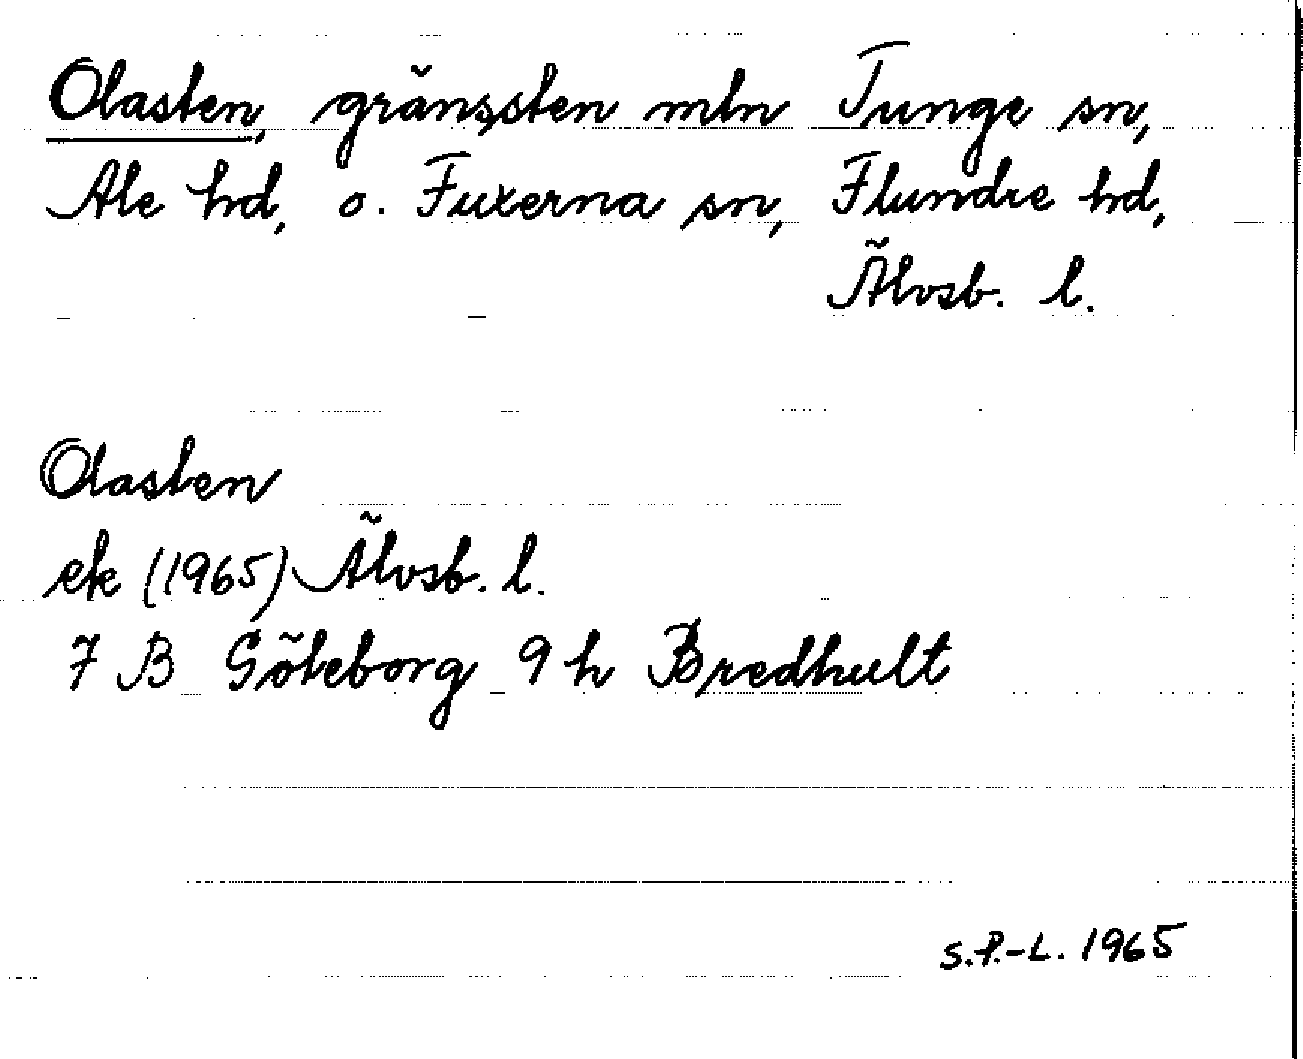 Olasten, gränssten mln Tunge sn,
Ale hd, o. Fuxerna sn, Flundre hd,
Älvsb. l.
Olasten
ek (1965) Älvsb. l.
7 B Göteborg 9 h Bredhult
S.P.-L. 1965